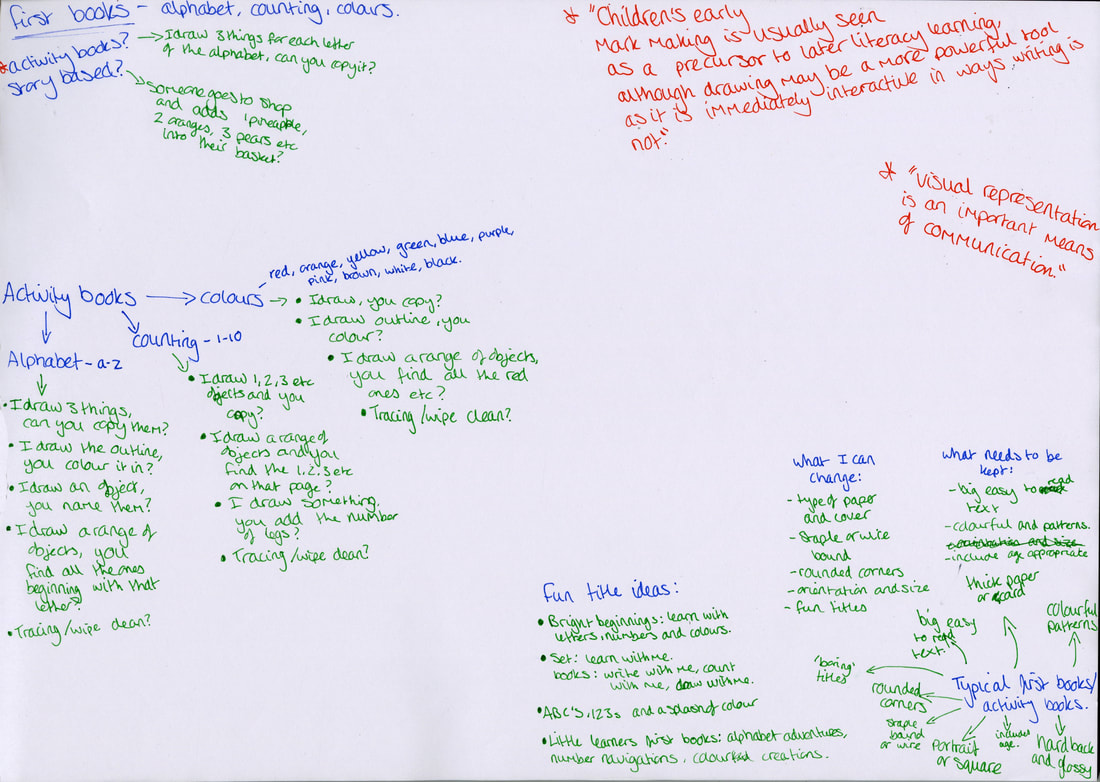 first books - alphabet, counting, colours.
* activity books?
story based?
→ I draw 3 things for each letter
of the alphabet, can you copy it?
someone goes to shop
and adds 1 pineapple,
2 oranges, 3 pears etc
into their basket?
* "Children's early
Mark Making is usually seen
as a precursor to later literacy learning,
although drawing may be a more powerful tool
as it is immediately interactive in ways writing is
not."
* "visual representation
is an important means
of communication."
Activity books → colours →
red, orange, yellow, green, blue, purple,
pink, brown, white, black.
• I draw, you copy?
• I draw outline, you
colour?
• I draw a range of objects,
you find all the red
ones etc?
• Tracing/wipe clean?
counting - 1-10
• I draw 1, 2, 3 etc
objects and you
copy?
• I draw a range of
objects and you
find the 1, 2, 3 etc
on that page?
• I draw something,
you add the number
of legs?
• Tracing/wipe clean?
Alphabet - a-z
• I draw 3 things,
can you copy them?
• I draw the outline,
you colour it in?
• I draw an object,
you name them?
• I draw a range of
objects, you
find all the ones
beginning with that
letter?
• Tracing/wipe clean?
Fun title ideas:
• Bright beginnings: learn with
letters, numbers and colours.
• Set: learn with me.
books: write with me, count
with me, draw with me.
• ABC'S, 123s and a splash of colour
• Little learners first books: alphabet adventures,
number navigations, colourful creations.
What I can
change:
- type of paper
and cover
- Staple or wire
bound
- rounded corners
- orientation and size
- fun titles
what needs to be
kept:
- big easy to read
text
- colourful and patterns.
- orientation and size
- include age appropriate
Typical first books/
activity books.
thick paper
or card
colourful
patterns
big easy
to read
text.
'boring'
titles
rounded
corners
staple
bound
or wire
portrait
or square
includes
age.
hardback
and glossy